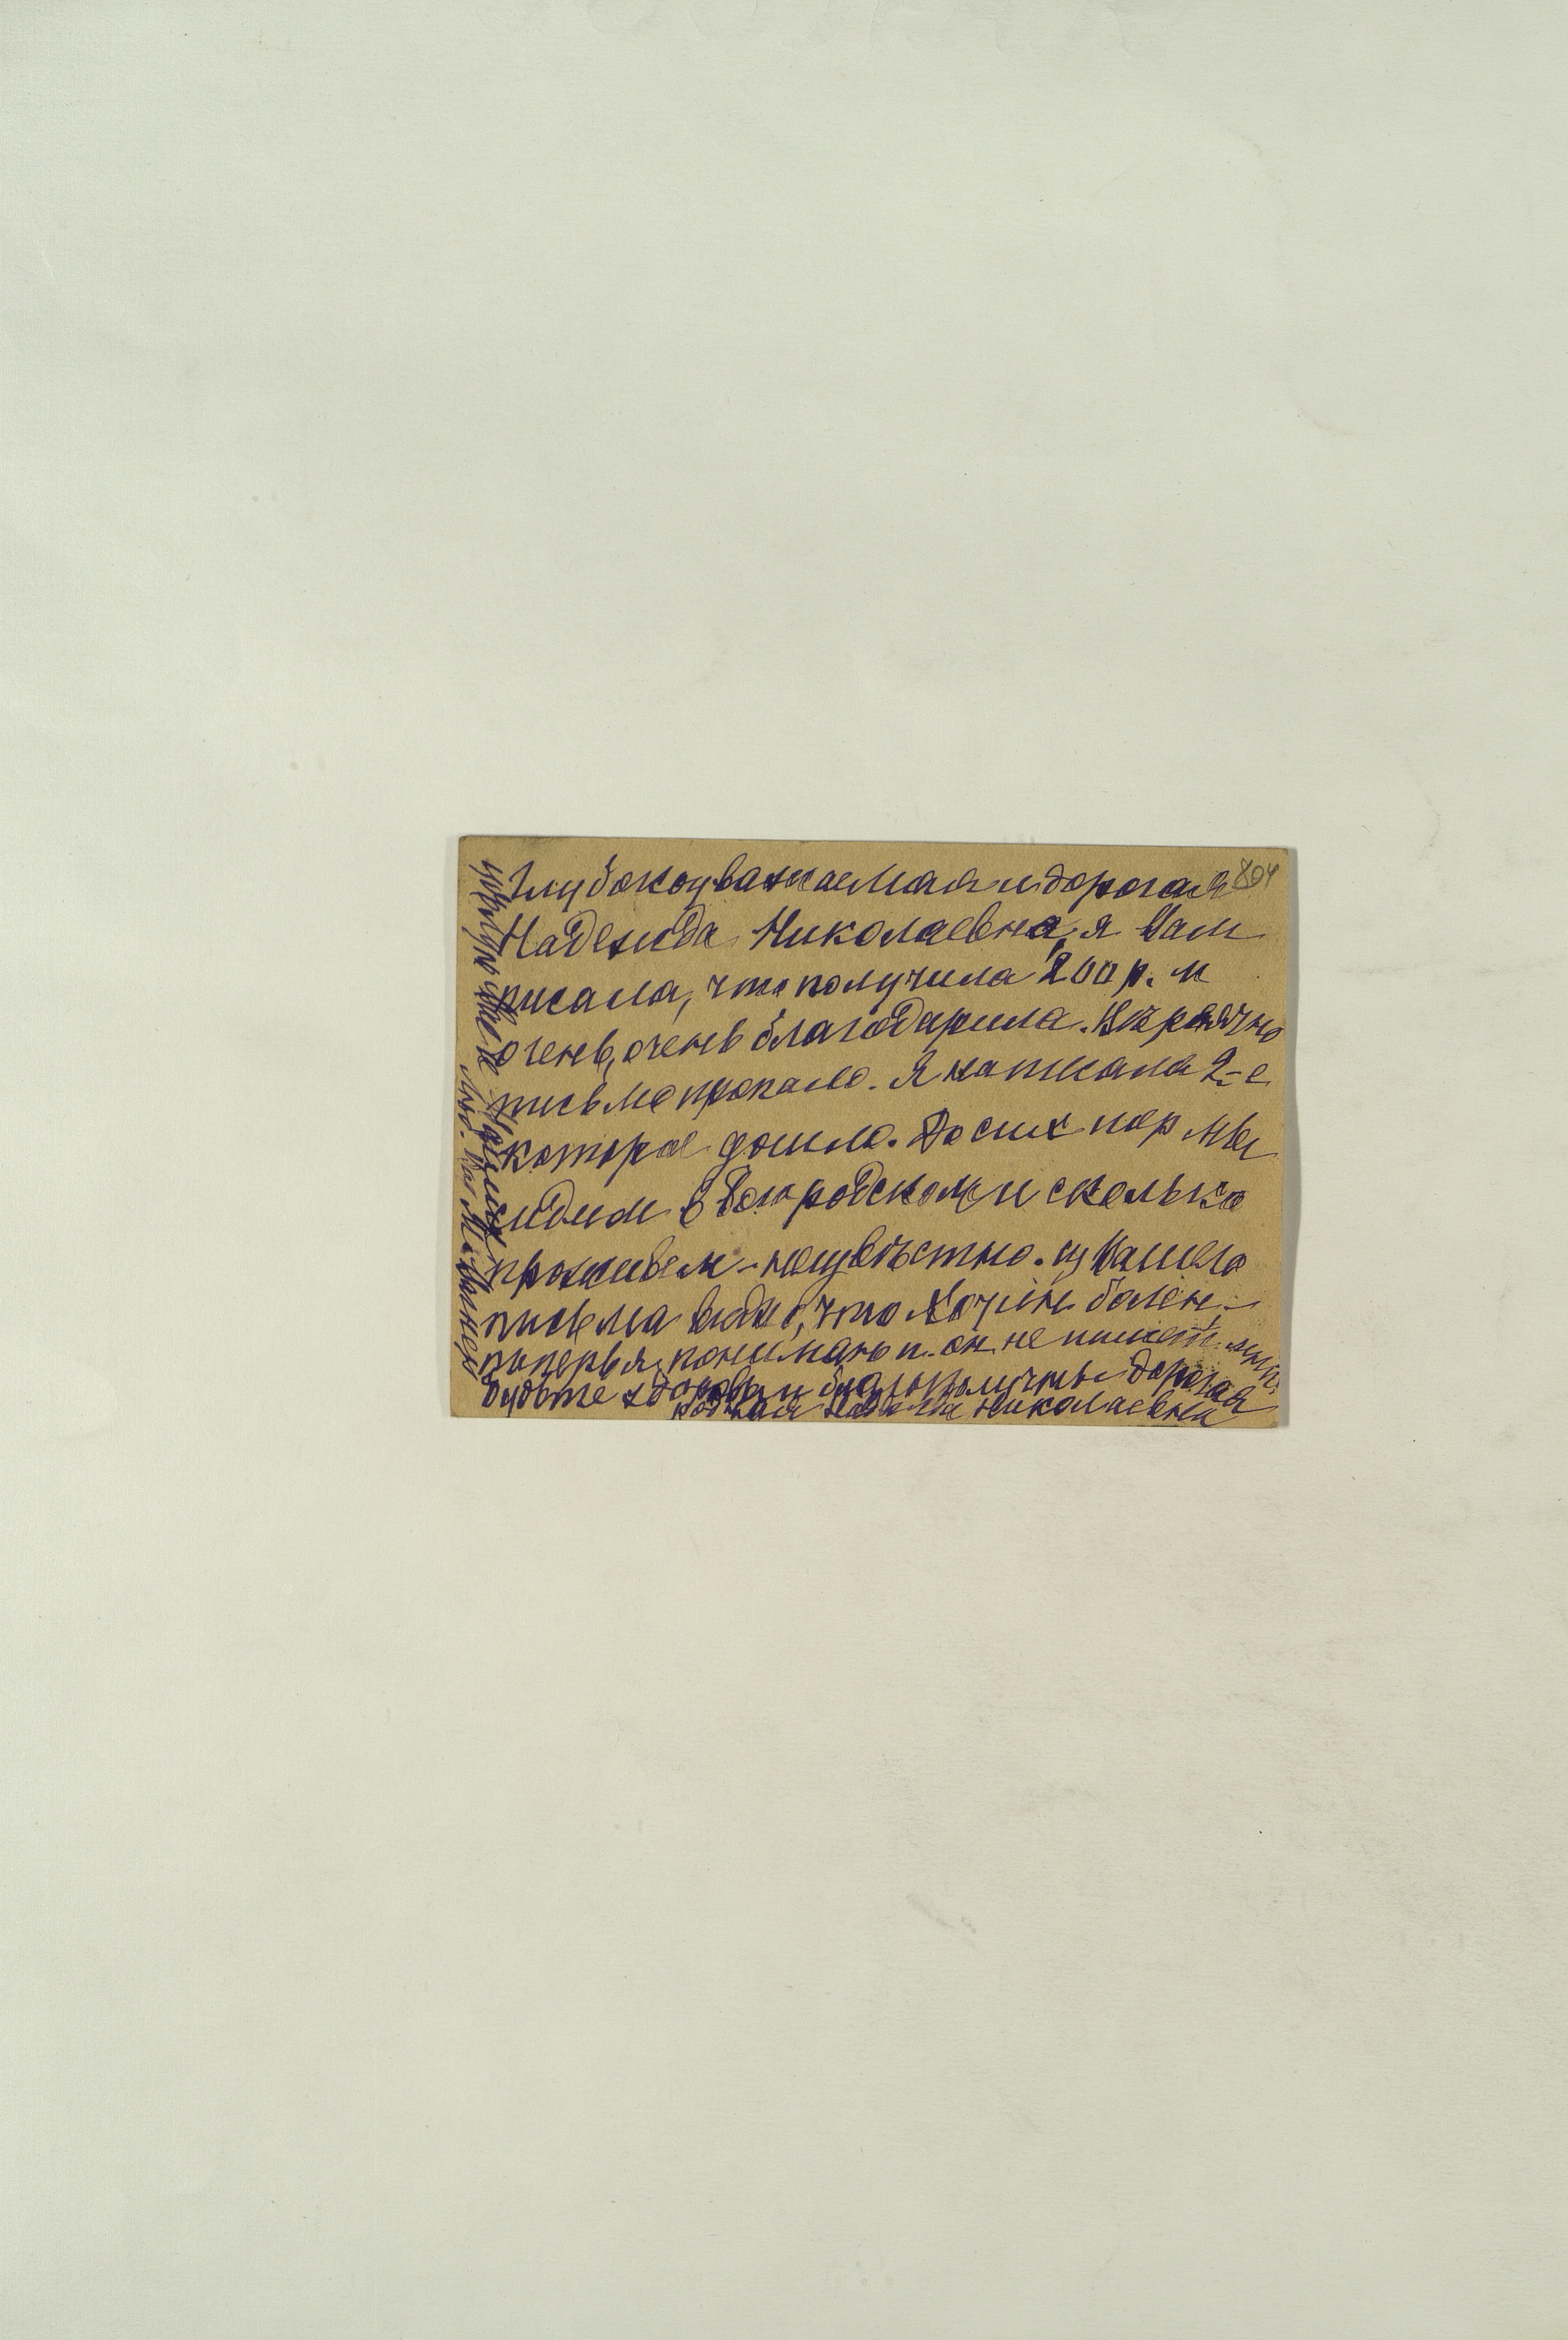 804
Глубокоуважаемая и дорогая
Надежда Николаевна, я Вам
писала, что получила 200 р. и
очень, очень благодарила. Вероятно
письмо пропало. Я написала 2-е
которое дошло. До сих пор мы
сидим в Богородском и сколько
проживем - неизвестно. Из Вашего
письма видно, что болен -
теперь я понимаю п. он не пишет.
будьте здоровы и благополучны дорогая
родная Надежда Николаевна
Люб. Вас М.